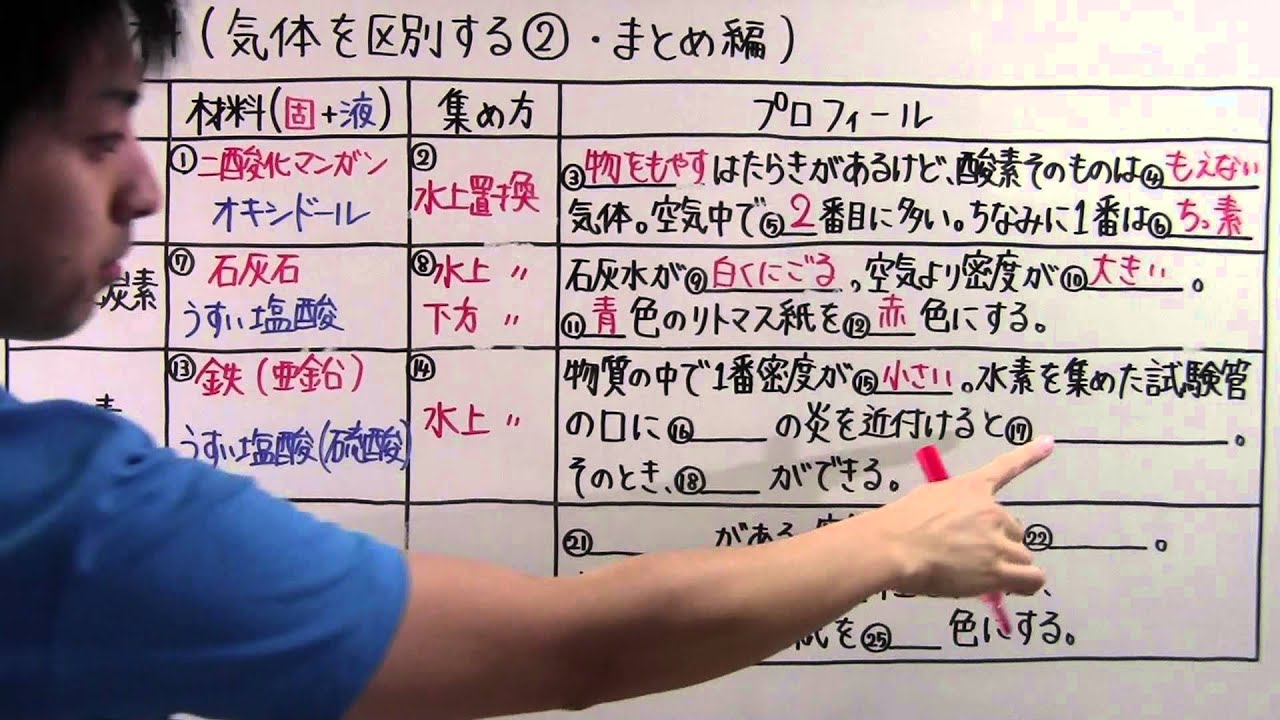 (気体を区別する②・まとめ編)
材料(固+液)
集め方
プロフィール
①二酸化マンガン
オキシドール
②
水上置換
③物をもやすはたらきがあるけど、酸素そのものは④もえない
気体。空気中で⑤2番目に多い。ちなみに1番は⑥ちっ素
炭素
⑦石灰石
うすい塩酸
⑧水上〃
下方〃
石灰水が⑨白くにごる、空気より密度が⑩大きい。
⑪青色のリトマス紙を⑫赤色にする。
素
⑬鉄(亜鉛)
うすい塩酸(硫酸)
⑭
水上〃
物質の中で1番密度が⑮小さい。水素を集めた試験管
の口に⑯の炎を近付けると⑰。
そのとき、⑱ができる。
㉑がある
㉒。
紙を㉕色にする。